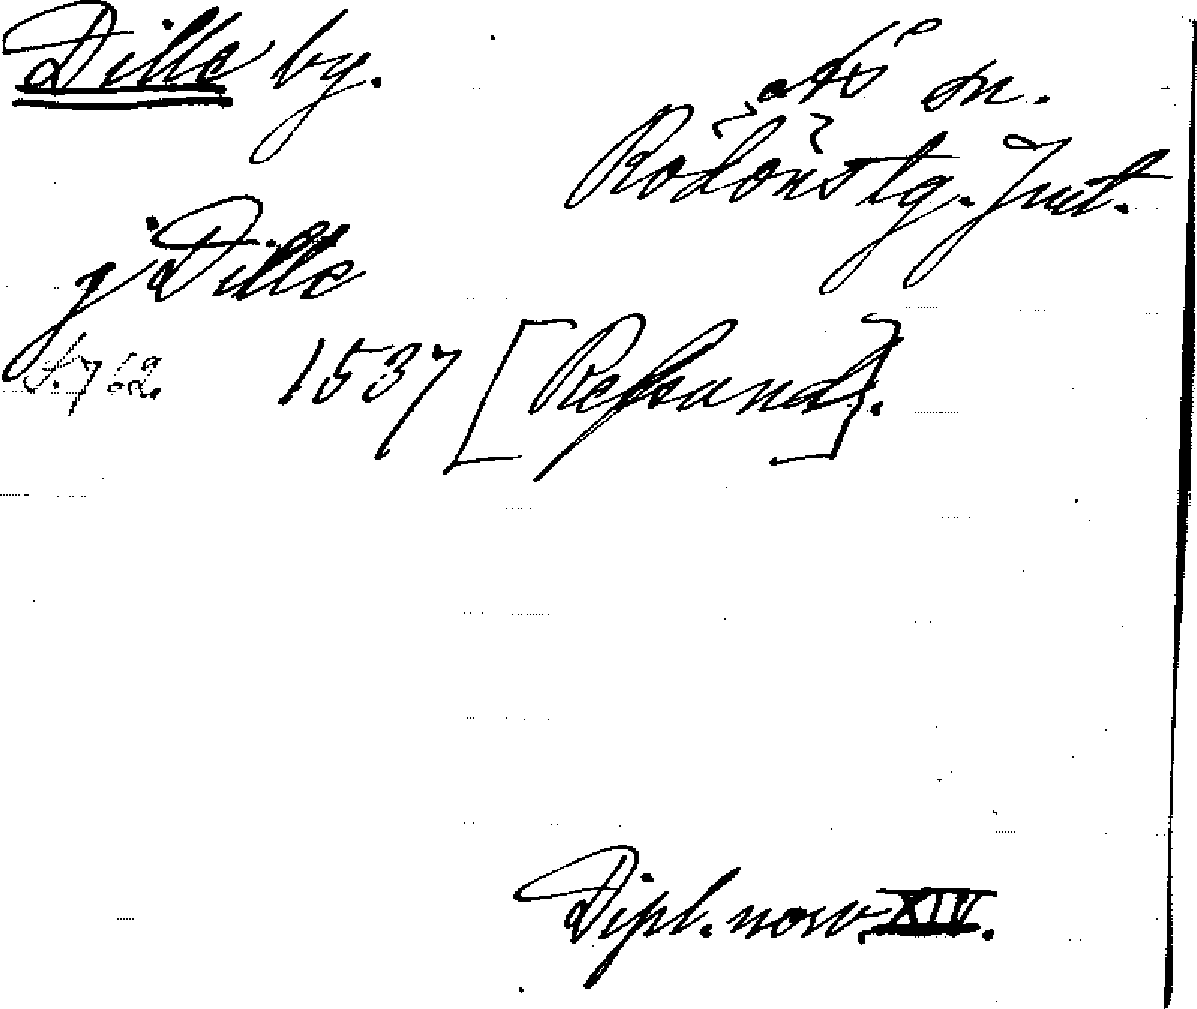 Dille by.
Ås sn.
Rödöns tg. Jmt.
j Dille
s. 762. 1537 [Refsund].
Dipl. norv. XIV.